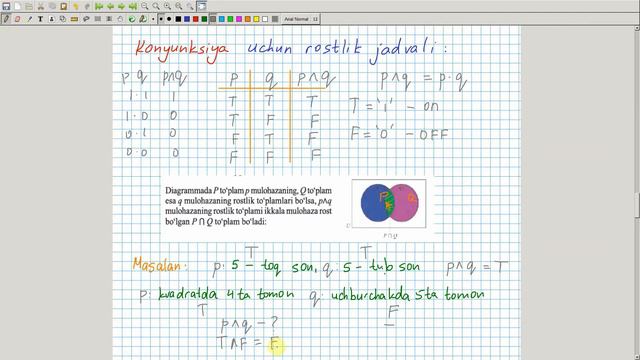 Arial Normal 12
Konyunksiya uchun rostlik jadvali:
p q p∧q
1·1 1
1·0 0
0·1 0
0·0 0
p q p∧q
T T T
T F F
F T F
F F F
p∧q = p·q
T='1' - on
F='0' - OFF
Diagrammada P to'plam p mulohazaning, Q to'plam
esa q mulohazaning rostlik to'plamlari bo'lsa, p∧q
mulohazaning rostlik to'plami ikkala mulohaza rost
bo'lgan P ∩ Q to'plam bo'ladi:
P Q
P∩Q
T T
Masalan: p: 5 - toq son, q: 5 - tub son p∧q = T
p: kvadratda 4 ta tomon q: uchburchakda 5ta tomon
T F
p∧q - ?
T∧F = F